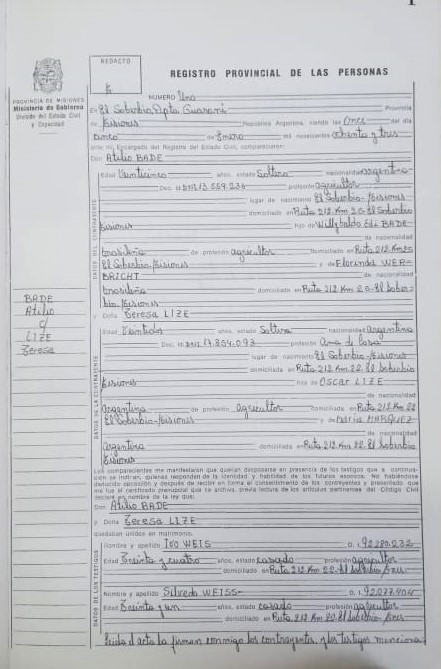 REDACTO
PROVINCIA DE MISIONES
Ministerio de Gobierno
División del Estado Civil
y Capacidad
REGISTRO PROVINCIAL DE LAS PERSONAS
NUMERO Uno
En El Soberbio Dpto. Guaraní Provincia
de Misiones República Argentina, siendo las Once del día
cinco de Enero mil novecientos ochenta y tres
ante mí Encargado del Registro del Estado Civil, comparecieron:
Don Atilio BADE
Edad Veinticinco años, estado Soltero nacionalidad argentina
Doc. Id. profesión agricultor
lugar de nacimiento El Soberbio-Misiones
domiciliado en Ruta 212 Km 20-El Soberbio
Misiones hijo de Willybaldo Edi BADE-
de nacionalidad
brasileña de profesión agricultor domiciliado en Ruta 212 Km 20
El Soberbio-Misiones y de Florinda WER-
BRICHT de nacionalidad
brasileña domiciliada en Ruta 212 Km 20-El Sober-
bio-Misiones
y Doña Teresa LIZE
Edad Veintidos años, estado Soltera nacionalidad Argentina
Doc. Id. profesión Ama de Casa
lugar de nacimiento El Soberbio-Misiones
domiciliada en Ruta 212 Km 22 El Soberbio
Misiones hija de Oscar LIZE
de nacionalidad
Argentina de profesión agricultor domiciliado en Ruta 212 Km 22
El Soberbio-Misiones y de María MARQUEZ
de nacionalidad
Argentina domiciliada en Ruta 212 Km 22-El Soberbio
Misiones
Los comparecientes me manifestaron que querían desposarse en presencia de los testigos que a continua-
ción se indican, quienes responden de la identidad y habilidad de los futuros esposos. No habiéndose
deducido oposición y después de recibir en forma el consentimiento de los contrayentes y presentado que
me fue el certificado prenupcial que se archiva, previa lectura de los artículos pertinentes del Código Civil
declaré en nombre de la ley que:
Don Atilio BADE
y Doña Teresa LIZE
quedaban unidos en matrimonio.
Nombre y apellido Ivo WEIS D. I. 92.280.232
Edad Treinta y cuatro años, estado casado profesión agricultor
domiciliado en Ruta 212 Km 22-El Soberbio
Nombre y apellido Silvedo WEISS- D. I. 92.077.404
Edad Treinta y un años, estado casado profesión agricultor
domiciliado en Ruta 212 Km 20-El Soberbio
Leída el acta la firman conmigo los contrayentes y los testigos menciona
DATOS DEL CONTRAYENTE
DATOS DE LA CONTRAYENTE
DATOS DE LOS TESTIGOS
BADE
Atilio
c/
LIZE
Teresa